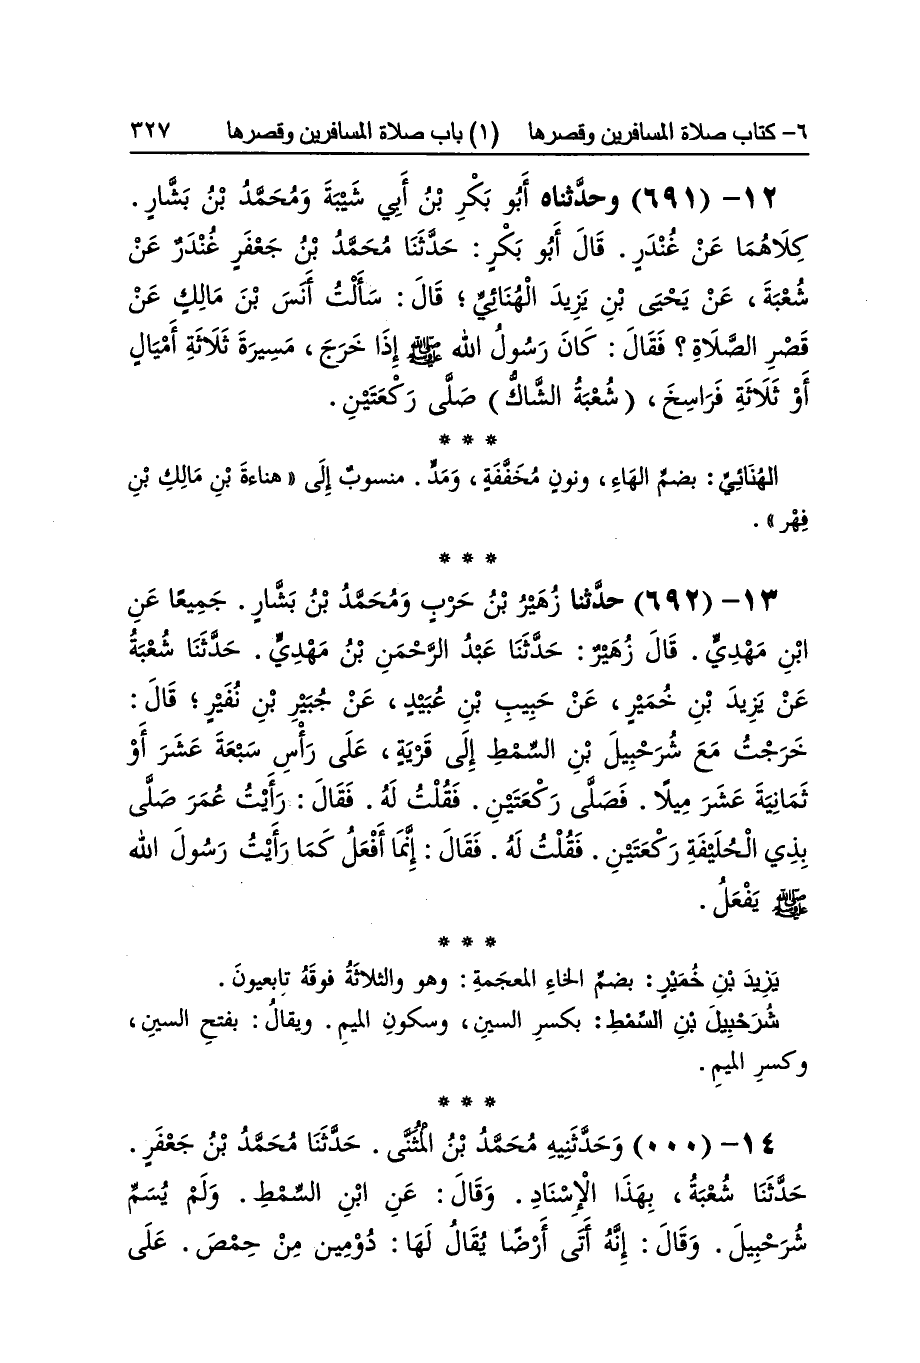 ٦- كتاب صلاة المسافرين وقصرها (١) باب صلاة المسافرين وقصرها ٣٢٧
١٢- (٦٩١) وحدَّثناه أَبُو بَكْرِ بْنُ أَبِي شَيْبَةَ وَمُحَمَّدُ بْنُ بَشَّارٍ .
كِلَاهُمَا عَنْ غُنْدَرٍ . قَالَ أَبُو بَكْرٍ : حَدَّثَنَا مُحَمَّدُ بْنُ جَعْفَرٍ غُنْدَرٌ عَنْ
شُعْبَةَ ، عَنْ يَحْيَى بْنِ يَزِيدَ الْهُنَائِيِّ ؛ قَالَ : سَأَلْتُ أَنَسَ بْنَ مَالِكٍ عَنْ
قَصْرِ الصَّلَاةِ ؟ فَقَالَ : كَانَ رَسُولُ الله ﷺ إِذَا خَرَجَ ، مَسِيرَةَ ثَلَاثَةِ أَمْيَالٍ
أَوْ ثَلَاثَةِ فَرَاسِخَ ، ( شُعْبَةُ الشَّاكُّ ) صَلَّى رَكْعَتَيْنِ .
* * *
الهُنَائِيِّ : بضمِّ الهَاءِ ، ونونٍ مُخَفَّفَةٍ ، وَمَدٍّ . منسوبٌ إِلَى « هناءةَ بْنِ مَالِكِ بْنِ
فِهْر » .
* * *
١٣- (٦٩٢) حدَّثنا زُهَيْرُ بْنُ حَرْبٍ وَمُحَمَّدُ بْنُ بَشَّارٍ . جَمِيعًا عَنِ
ابْنِ مَهْدِيٍّ . قَالَ زُهَيْرٌ : حَدَّثَنَا عَبْدُ الرَّحْمَنِ بْنُ مَهْدِيٍّ . حَدَّثَنَا شُعْبَةُ
عَنْ يَزِيدَ بْنِ خُمَيْرٍ ، عَنْ حَبِيبِ بْنِ عُبَيْدٍ ، عَنْ جُبَيْرِ بْنِ نُفَيْرٍ ؛ قَالَ :
خَرَجْتُ مَعَ شُرَحْبِيلَ بْنِ السِّمْطِ إِلَى قَرْيَةٍ ، عَلَى رَأْسِ سَبْعَةَ عَشَرَ أَوْ
ثَمَانِيَةَ عَشَرَ مِيلًا . فَصَلَّى رَكْعَتَيْنِ . فَقُلْتُ لَهُ . فَقَالَ : رَأَيْتُ عُمَرَ صَلَّى
بِذِي الْحُلَيْفَةِ رَكْعَتَيْنِ . فَقُلْتُ لَهُ . فَقَالَ : إِنَّمَا أَفْعَلُ كَمَا رَأَيْتُ رَسُولَ الله
ﷺ يَفْعَلُ .
* * *
يَزِيدَ بْنِ خُمَيْرٍ : بضمِّ الخاءِ المعجَمةِ : وهو والثلاثَةُ فوقَهُ تابعيونَ .
شُرَحْبِيلَ بْنِ السِّمْطِ : بكسرِ السينِ ، وسكونِ الميمِ . ويقالُ : بفتحِ السينِ ،
وكسرِ الميمِ .
* * *
١٤- (٠٠٠) وَحَدَّثَنِيهِ مُحَمَّدُ بْنُ الْمُثَنَّى . حَدَّثَنَا مُحَمَّدُ بْنُ جَعْفَرٍ .
حَدَّثَنَا شُعْبَةُ ، بِهَذَا الْإِسْنَادِ . وَقَالَ : عَنِ ابْنِ السِّمْطِ . وَلَمْ يُسَمِّ
شُرَحْبِيلَ . وَقَالَ : إِنَّهُ أَتَى أَرْضًا يُقَالُ لَهَا : دُوْمِين مِنْ حِمْصَ . عَلَى